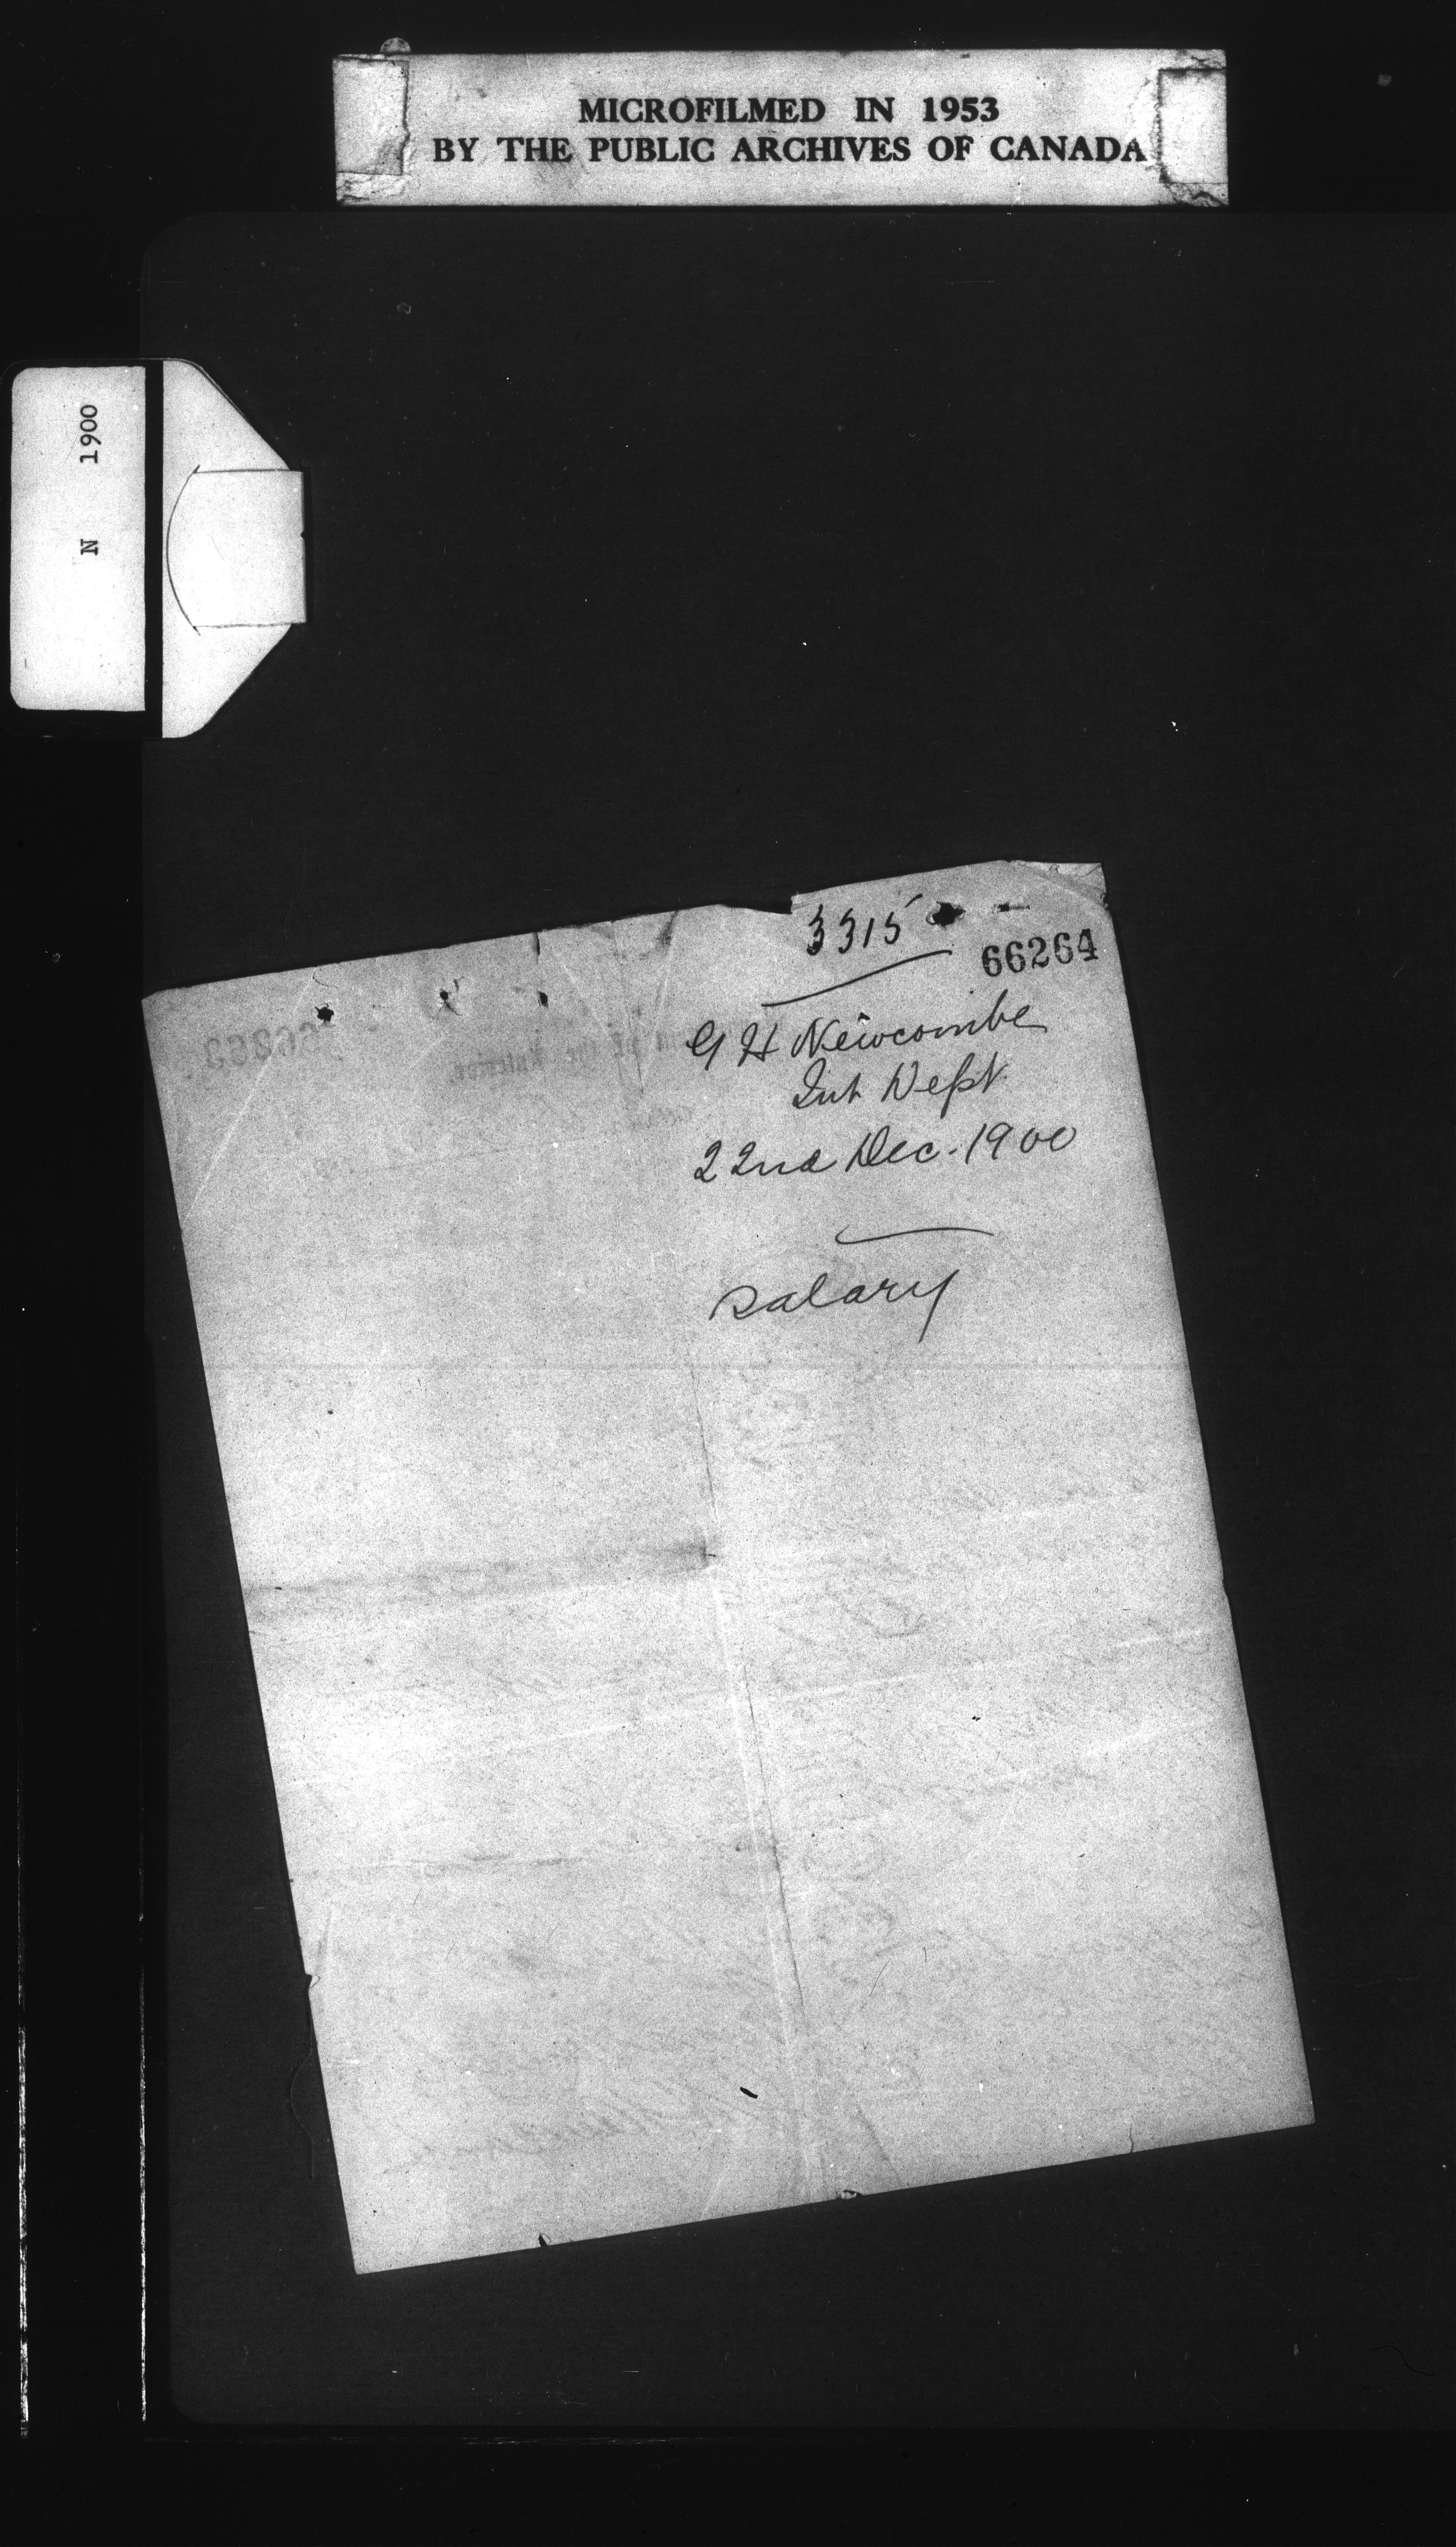 MICROFILMED IN 1953
BY THE PUBLIC ARCHIVES OF CANADA
N 1900
3315
66264
G H Newcombe
Int Dept
22nd Dec. 1900
salary